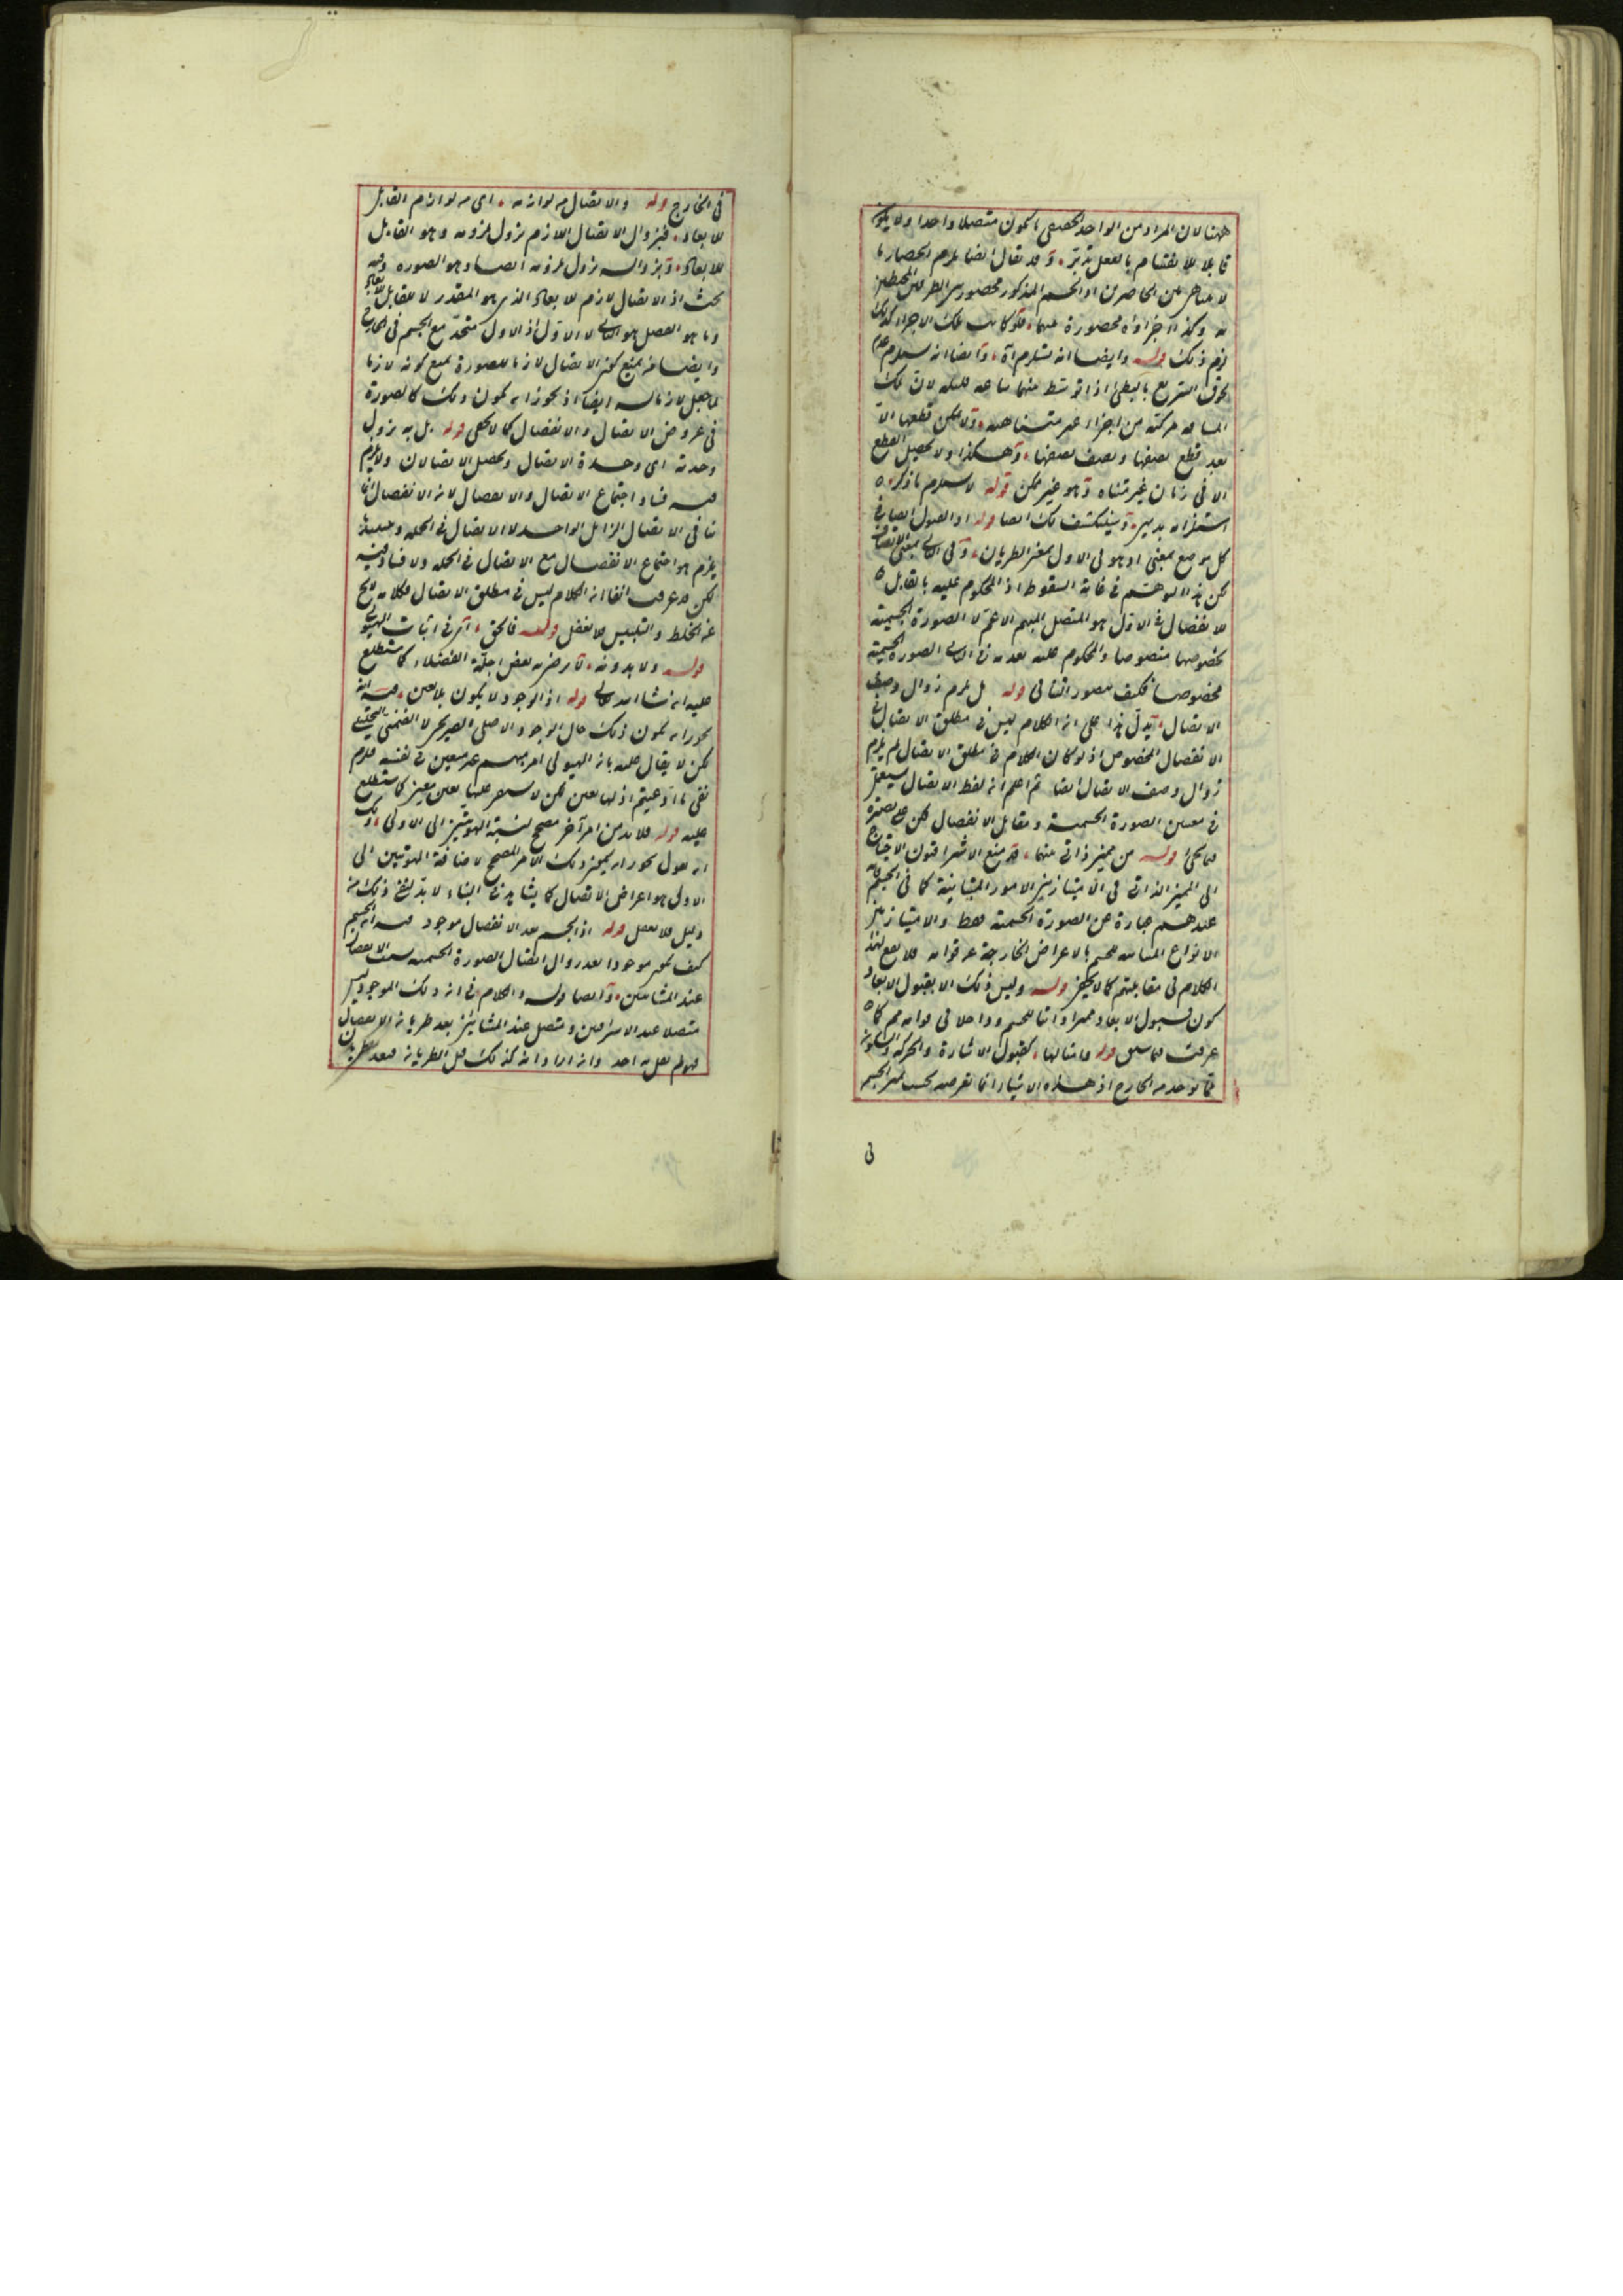 ههنا لان المراد من الواحد الحقيقي ان يكون متصلا واحدا ولا يكون
قابلا للانقسام بالفعل تدبر وقد يقال ايضا يلزم انحصار ما
لا يتناهى بين الحاصرين اذ الجسم المذكور محصور بين الطرفين المحيطين
به وكذا اجزاؤه محصورة بينهما فلو كانت تلك الاجزاء كذلك
لزم ذلك قوله وايضا انه يستلزم آه وايضا انه يستلزم عدم
لحوق السريع بالبطئ اذا توسط بينهما مسافة قليلة لان تلك
المسافة مركبة من اجزاء غير متناهية ولا يمكن قطعها الا
بعد قطع نصفها ونصف نصفها وهكذا ولا يحصل القطع
الا في زمان غير متناه وهو غير ممكن قوله لاستلزام ما ذكر
كل موضع بمعنى اذ هو في الاول بمعنى الطريان وفي الثاني بمعنى الاتصاف
لكن هذا التوهم في غاية السقوط اذ المحكوم عليه بانه قابل
للانفصال في الاول هو المتصل المبهم الاعم لا الصورة الجسمية
بخصوصها منصوصا والمحكوم عليه بعدمه في الثاني الصورة الجسمية
مخصوصا فكيف يتصور التنافي قوله بل يلزم زوال وصف
الاتصال يدل هذا على ان الكلام ليس في مطلق الاتصال بل
الانفصال المخصوص اذ لو كان الكلام في مطلق الاتصال لم يلزم
زوال وصف الاتصال ايضا ثم اعلم ان لفظ الاتصال يستعمل
في معنيين الصورة الجسمية ومقابل الانفصال
فيما يجئ قوله من مميز ذاتي بينهما قد منع الاشراقيون الاحتياج
الى المميز الذاتي في الامتياز بين الامور المتباينة كما في الجسم فانه
عندهم عبارة عن الصورة الجسمية فقط والامتياز بين
الانواع المتباينة للجسم بالاعراض الخارجة عن قوامه فلا يقع هذا
الكلام في مقابلتهم كما لا يخفى قوله وليس ذلك الا بقبول الابعاد
كون قبول الابعاد مميزا ذاتيا للجسم وداخلا في قوامه مم كما
عرفت فيما سبق قوله وامثالها كقبول الاشارة والحركة والسكون
مما يوجد في الخارج اذ هذه الاشياء انما تعرضه بحسب تميز الجسم
في
في الخارج قوله والاتصال من لوازمه اى من لوازم القابل
للابعاد فبزوال الاتصال اللازم يزول ملزومه وهو القابل
للابعاد وبزواله يزول ملزومه ايضا وهو الصورة وفيه
بحث اذ الاتصال لازم للابعاد الذي هو المقدر لا للقابل للابعاد
وما هو الفصل هو الثاني لا الاول اذ الاول متحد مع الجسم في الخارج
وايضا من يمنع كون الاتصال لازما للصورة يمنع كونه لازما
لما جعل لازما له ايضا اذ يجوز ان يكون ذلك كالصورة
في عروض الاتصال والانفصال كما لا يخفى قوله بل به يزول
وحدته اى وحدة الاتصال ويحصل الاتصالان ولا يلزم
فيه فساد اجتماع الاتصال والانفصال لان الانفصال انما
ينافي الاتصال الزائل الواحد لا الاتصال في الجملة
يلزم هو اجتماع الانفصال مع الاتصال في الجملة ولا فساد فيه
لكن قد عرفت انفا ان الكلام ليس في مطلق الاتصال فكلامه لا يخ
عن الخلط والتلبيس فلا تغفل قوله فالحق آه في اثبات الهيولى
قوله ولا بد ونه تأمر ضربه بعض اجلة الفضلاء كما ستطلع
عليه ان شاء الله تعالى قوله اذ الوجود لا يكون بلا تعين فيه انه
يجوز ان يكون ذلك حال الوجود الاصلي الصريحي لا الضمني التبعي
لكن لا يقال عليه بان الهيولى امر مبهم غير معين في نفسه فلزم
نفى ما ادعيتم اذ لها تعين لكن لا يتعين كما ستطلع
عليه قوله فلا بد من امر آخر مصحح لنسبة الهويتين الى الاولى ولك
ان تقول يجوز ان يكون ذلك الامر المصحح لاضافة الهويتين الى
الاولى هو اعراض الاتصال كما يشاهد في الماء لا بد لنفي ذلك من
دليل فلا تغفل قوله اذ الجسم بعد الانفصال موجود فيه ان الجسم
كيف يكون موجودا بعد زوال اتصال الصورة الجسمية بسبب الانفصال
عند المشائين وايضا قوله والكلام في ان ذلك الموجود ليس
متصلا عند الاشراقيين ومتصل عند المشائين بعد طريان الانفصال
فهو لم يقل به احد وان اراد انه كذلك قبل الطريان فبعد الطريان